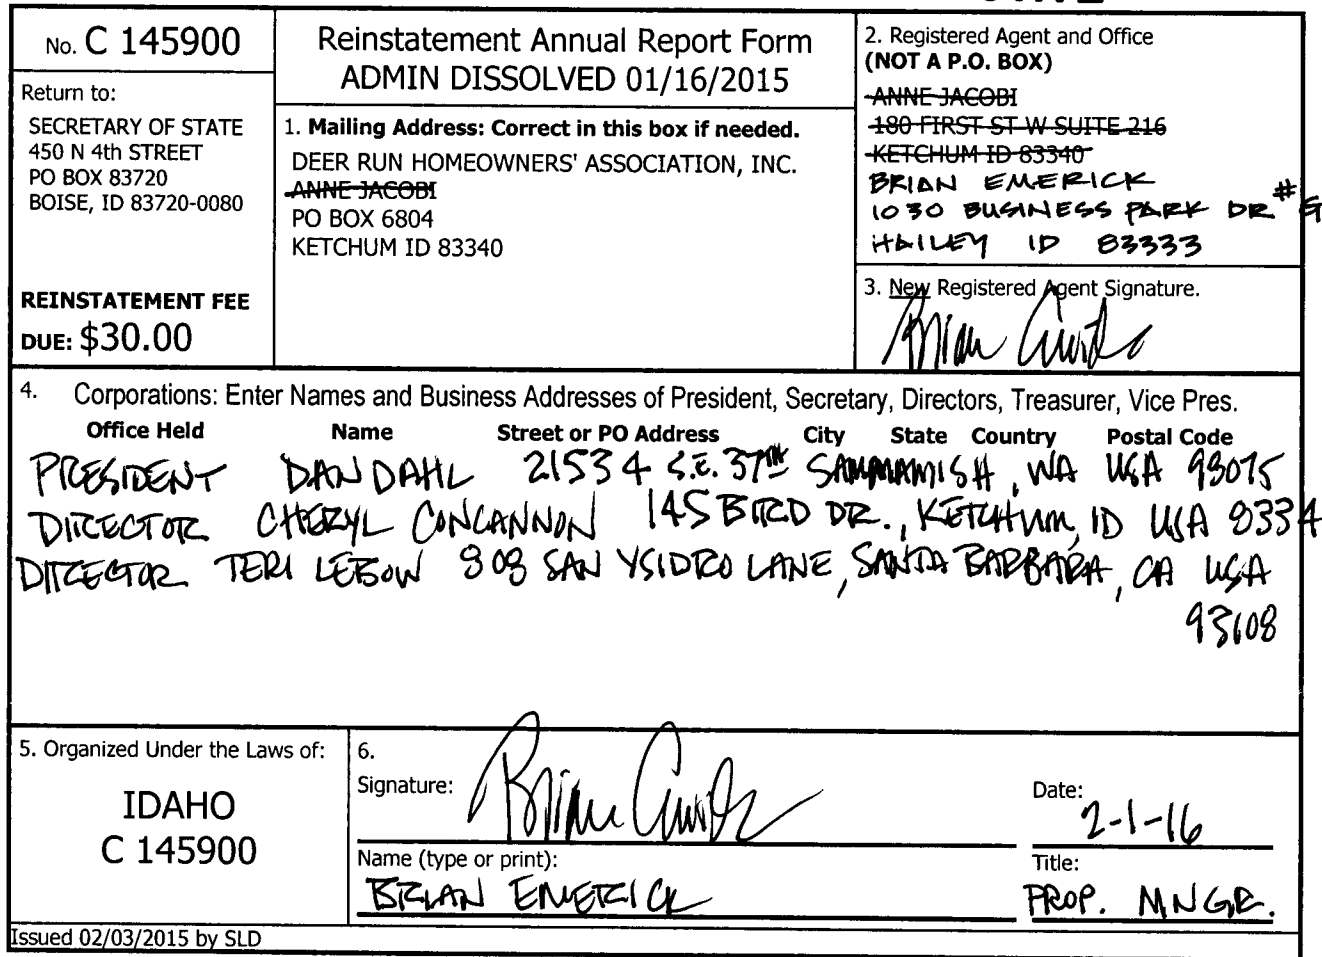 No. C 145900
Return to:
SECRETARY OF STATE
450 N 4th STREET
PO BOX 83720
BOISE, ID 83720-0080
REINSTATEMENT FEE
DUE: $30.00
Reinstatement Annual Report Form
ADMIN DISSOLVED 01/16/2015
1. Mailing Address: Correct in this box if needed.
DEER RUN HOMEOWNERS' ASSOCIATION, INC.
ANNE JACOBI
PO BOX 6804
KETCHUM ID 83340
2. Registered Agent and Office
(NOT A P.O. BOX)
ANNE JACOBI
180 FIRST ST W SUITE 216
KETCHUM ID 83340
BRIAN EMERICK
1030 BUSINESS PARK DR #
HAILEY ID 83333
3. New Registered Agent Signature.
4. Corporations: Enter Names and Business Addresses of President, Secretary, Directors, Treasurer, Vice Pres.
Office Held Name Street or PO Address City State Country Postal Code
PRESIDENT DAN DAHL 21534 S.E. 37TH SAMMAMISH, WA USA 98075
DIRECTOR CHERYL CONCANNON 145 BIRD DR., KETCHUM, ID USA 8334
DIRECTOR TERI LEBOW 808 SAN YSIDRO LANE, SANTA BARBARA, CA USA
93108
5. Organized Under the Laws of:
IDAHO
C 145900
6.
Signature:
Date:
2-1-16
Name (type or print):
BRIAN EMERICK
Title:
PROP. MNGR.
Issued 02/03/2015 by SLD